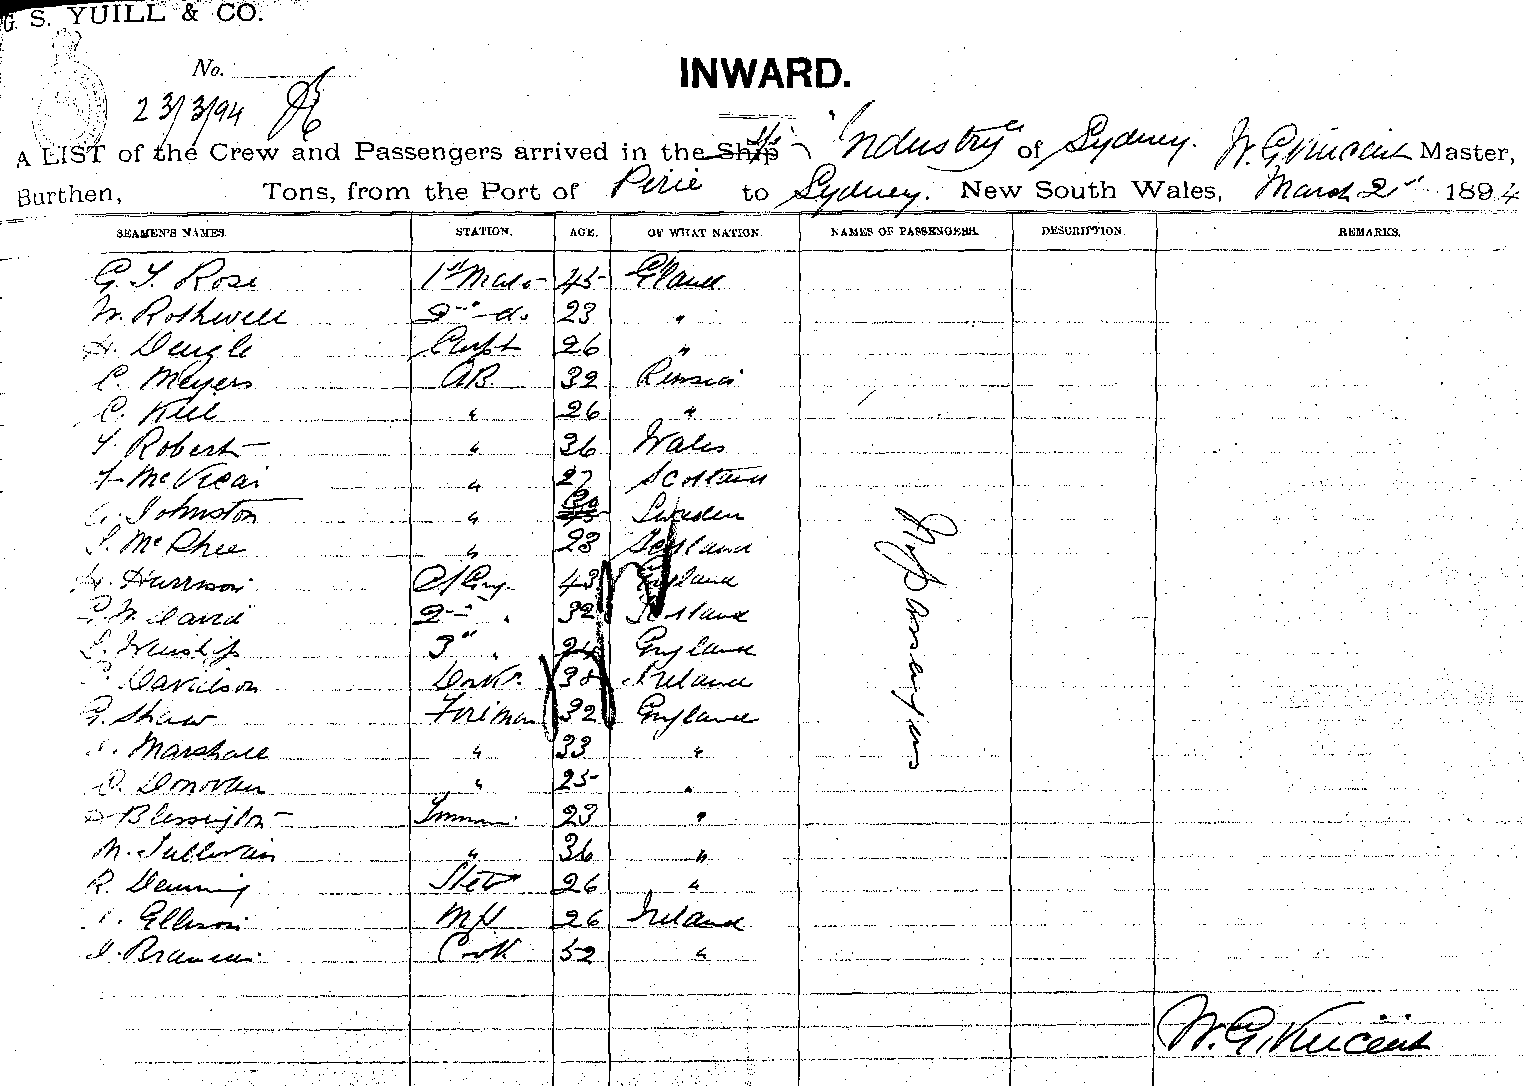 G. S. YUILL & CO.
No.
23/3/94
INWARD.
A LIST of the Crew and Passengers arrived in the Ship S/S "Industry" of Sydney. W. G. Vincent Master,
Burthen, Tons, from the Port of Pirie to Sydney. New South Wales, March 21st 1894
SEAMEN'S NAMES. STATION. AGE. OF WHAT NATION. NAMES OF PASSENGERS. DESCRIPTION. REMARKS.
G. Y. Rose 1st Mate 45 England
W. Rothwell 2nd do. 23 "
H. Dengle Carpt 26 "
C. Meyers AB. 32 Russia
C. Kell " 26 "
Y. Roberts " 36 Wales
McVicar " 27 Scotland
Johnston " Sweden
McPhee " 23 Scotland
H. Harrison 43 England
David 2nd " 32 Scotland
3rd " 24 England
Davidson Donkn. 38 Ireland
G. Shaw Fireman 32 England
Marshall " 33 "
D. Donovan " 25 "
Blessington 23 "
M. Sullivan " 36 "
R. Denning Stew 26 "
Ellison 26 Ireland
Cook 52 "
No passengers
W. G. Vincent